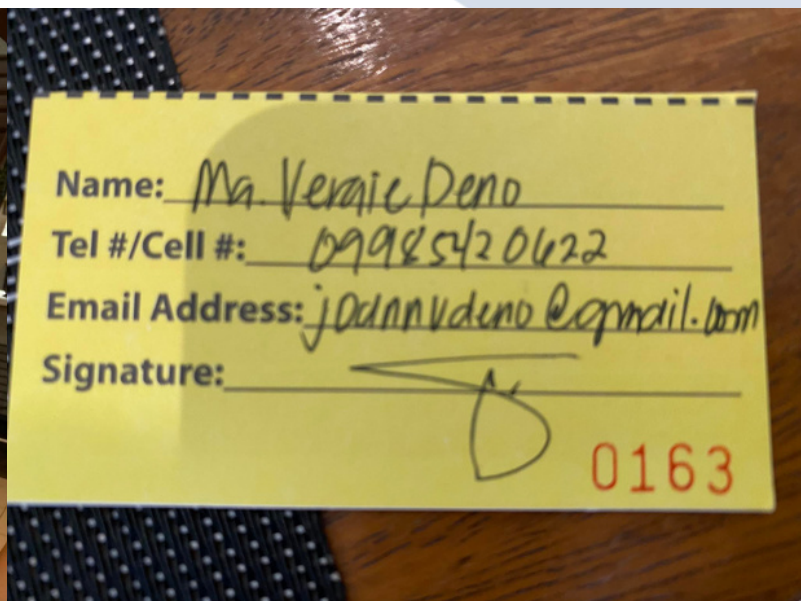 Name: Ma. Vergie Deno
Tel #/Cell #: 09985420622
Email Address: joannvdeno@gmail.com
Signature:
0163